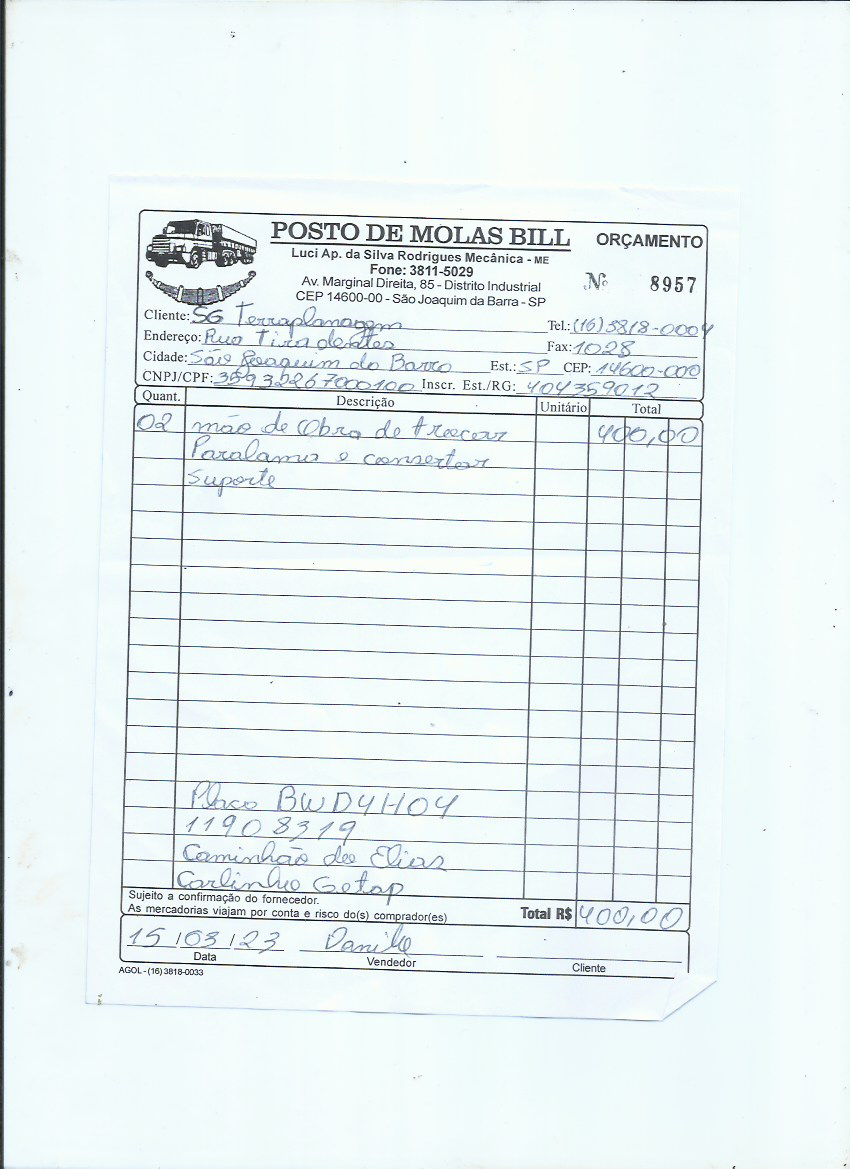 POSTO DE MOLAS BILL
ORÇAMENTO
Luci Ap. da Silva Rodrigues Mecânica - ME
Fone: 3811-5029
Av. Marginal Direita, 85 - Distrito Industrial
CEP 14600-00 - São Joaquim da Barra - SP
Nº 8957
Cliente: SG Terraplanagem Tel.: (16) 3818-0004
Endereço: Rua Tiradentes Fax: 1028
Cidade: São Joaquim da Barra Est.: SP CEP: 14600-000
CNPJ/CPF: 35932267000100 Inscr. Est./RG: 404359012
Quant. Descrição Unitário Total
02 mão de Obra de trocar 400,00
Paralamas e consertar
Suporte
Placa BWD4H04
11908319
Caminhão do Elias
Carlinho Getap
Sujeito a confirmação do fornecedor.
As mercadorias viajam por conta e risco do(s) comprador(es)
Total R$ 400,00
15/03/23 Danilo
Data Vendedor Cliente
AGOL - (16) 3818-0033